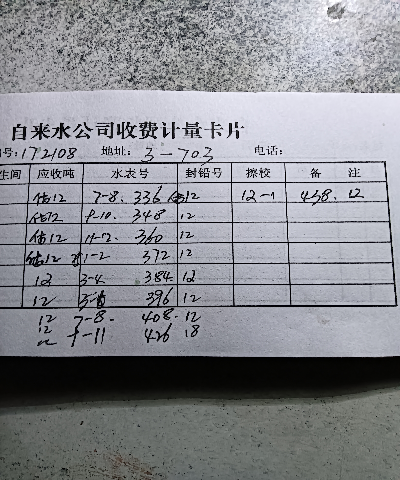 自来水公司收费计量卡片
号:172108 地址: 3-703 电话:
生间 应收吨 水表号 封铅号 擦校 备 注
估12 7-8. 336 12 12-1 438. 12
估12 9-10. 348 12
估12 11-12 360 12
估12 1-2 372 12
12 3-4 384 12
12 396 12
12 7-8. 408. 12
12 9-11 426 18